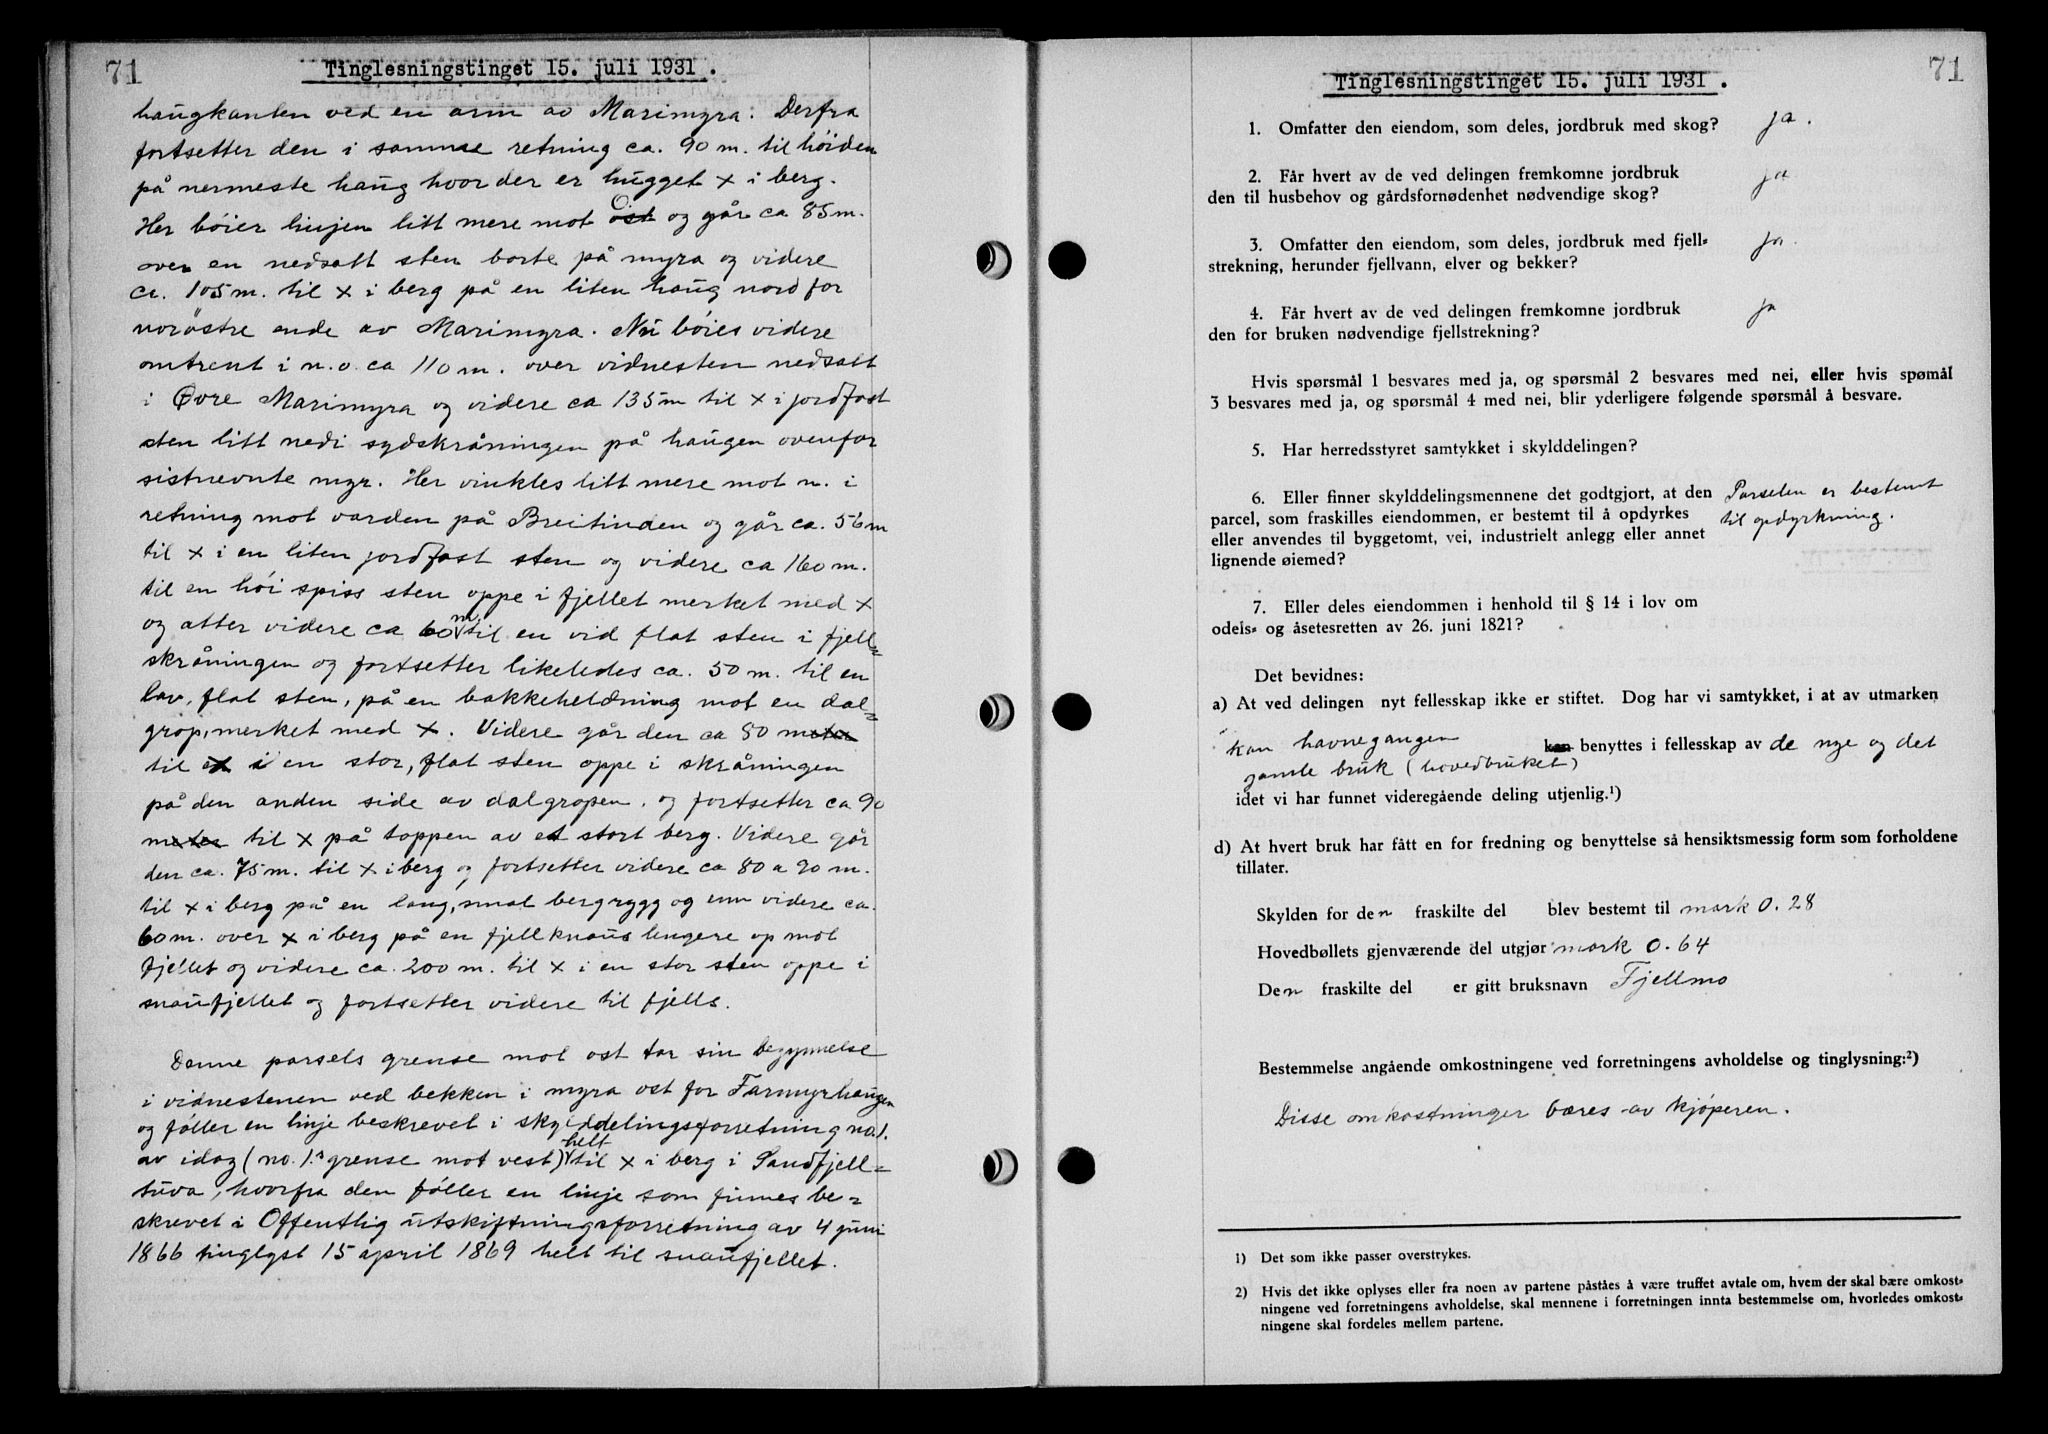 71
Tinglesningstinget 15. juli 1931.
haugkanten ved en arm av Marimyra: Derfra
fortsetter den i samme retning ca. 90 m. til höiden
på nermeste haug hvor der er hugget x i berg.
Her böier linjen litt mere mot Ost og går ca 85 m.
over en nedsatt sten borte på myra og videre
ca. 105 m. til x i berg på en liten haug nord for
noröstre ende av Marimyra. Nu böies videre
omtrent i n.o. ca 110 m. over vidnesten nedsatt
i Øvre Marimyra og videre ca 135 m til x i jordfast
sten litt nedi sydskråningen på haugen ovenfor
sistnevnte myr. Her vinkles litt mere mot n. i
retning mot varden på Breitinden og går ca. 56 m
til x i en liten jordfast sten og videre ca 160 m.
til en höi spiss sten oppe i fjellet merket med x
og atter videre ca 60 m. til en vid flat sten i fjell=
skråningen og fortsetter likeledes ca. 50 m. til en
lav, flat sten, på en bakkeheldning mot en dal=
grop, merket med x. Videre går den ca 80 meter
til x i en stor, flat sten oppe i skråningen
på den anden side av dalgropen, og fortsetter ca 90
meter til x på toppen av et stort berg. Videre går
den ca. 75 m. til x i berg og fortsetter videre ca 80 a 90 m.
til x i berg på en lang, smal bergrygg og enn videre ca.
60 m. over x i berg på en fjellknaus lengere op mot
fjellet og videre ca. 200 m. til x i en stor sten oppe i
snaufjellet og fortsetter videre til fjells.
Denne parsels grense mot ost tar sin begynnelse
i vidnestenen ved bekken i myra ost for Farmyrhaugen
og föller en linje beskrevet i skylddelingsforretning no 1.
av idag (no. 1.s grense mot vest) helt til x i berg i Sandfjell=
tuva, hvorfra den föller en linje som finnes be=
skrevet i Offentlig utskiftningsforretning av 4 juni
1866 tinglyst 15 april 1869 helt til snaufjellet.
71
Tinglesningstinget 15. juli 1931.
1. Omfatter den eiendom, som deles, jordbruk med skog? ja.
2. Får hvert av de ved delingen fremkomne jordbruk
den til husbehov og gårdsfornødenhet nødvendige skog? ja
3. Omfatter den eiendom, som deles, jordbruk med fjell=
strekning, herunder fjellvann, elver og bekker? ja.
4. Får hvert av de ved delingen fremkomne jordbruk
den for bruken nødvendige fjellstrekning? ja
Hvis spørsmål 1 besvares med ja, og spørsmål 2 besvares med nei, eller hvis spømål
3 besvares med ja, og spørsmål 4 med nei, blir yderligere følgende spørsmål å besvare.
5. Har herredsstyret samtykket i skylddelingen?
6. Eller finner skylddelingsmennene det godtgjort, at den
parcel, som fraskilles eiendommen, er bestemt til å opdyrkes
eller anvendes til byggetomt, vei, industrielt anlegg eller annet
lignende øiemed?
Parselen er bestemt
til opdyrkning.
7. Eller deles eiendommen i henhold til § 14 i lov om
odels= og åsetesretten av 26. juni 1821?
Det bevidnes:
a) At ved delingen nyt fellesskap ikke er stiftet. Dog har vi samtykket, i at av utmarken
kan havnegangen kan benyttes i fellesskap av de nye og det
gamle bruk (hovedbruket)
idet vi har funnet videregående deling utjenlig.¹)
d) At hvert bruk har fått en for fredning og benyttelse så hensiktsmessig form som forholdene
tillater.
Skylden for den fraskilte del blev bestemt til mark 0.28
Hovedbøllets gjenværende del utgjør mark 0.64
Den fraskilte del er gitt bruksnavn Fjellmo
Bestemmelse angående omkostningene ved forretningens avholdelse og tinglysning:²)
Disse omkostninger bæres av kjöperen.
1) Det som ikke passer overstrykes.
2) Hvis det ikke oplyses eller fra noen av partene påståes å være truffet avtale om, hvem der skal bære omkost=
ningene ved forretningens avholdelse, skal mennene i forretningen innta bestemmelse om, hvorledes omkost=
ningene skal fordeles mellem partene.